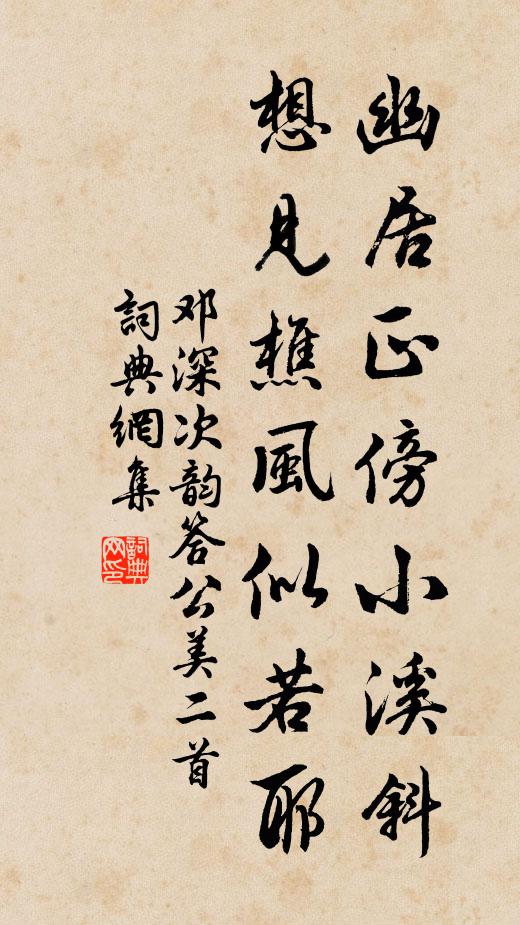 幽居正傍小溪斜
想見樵風似若耶
邓深次韵答公美二首
詞典網集
詞典网印